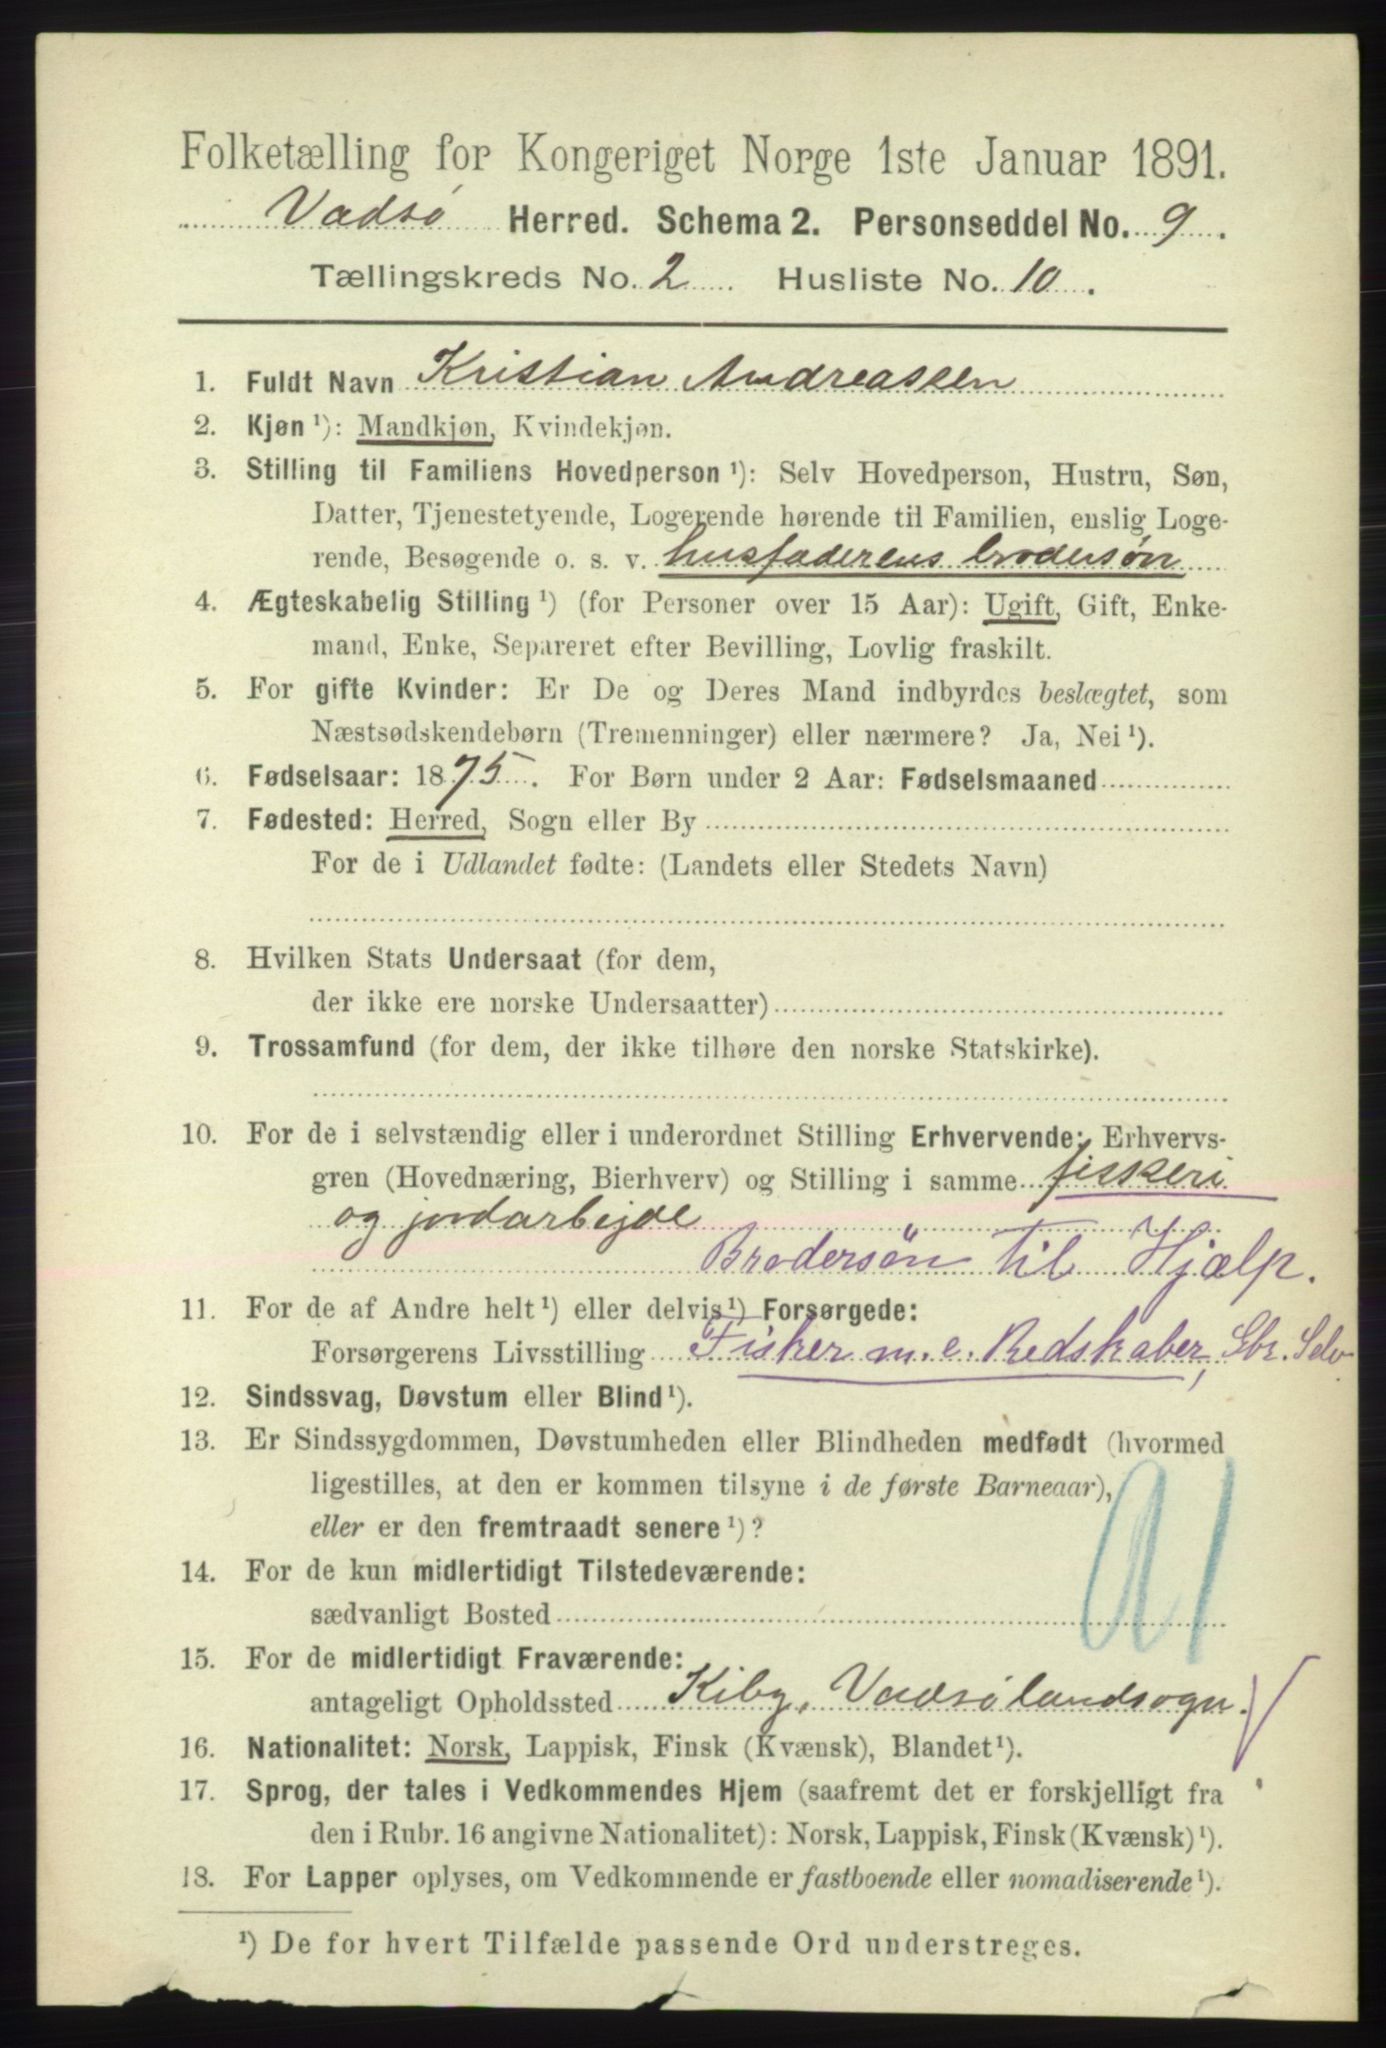 Folketælling for Kongeriget Norge 1ste Januar 1891.
Vadsø Herred. Schema 2. Personseddel No. 9.
Tællingskreds No. 2 Husliste No. 10.
1. Fuldt Navn Kristian Andreassen
2. Kjøn ¹): Mandkjøn, Kvindekjøn.
3. Stilling til Familiens Hovedperson ¹): Selv Hovedperson, Hustru, Søn,
Datter, Tjenestetyende, Logerende hørende til Familien, enslig Loge-
rende, Besøgende o. s. v. husfaderens brodersøn
4. Ægteskabelig Stilling ¹) (for Personer over 15 Aar): Ugift, Gift, Enke-
mand, Enke, Separeret efter Bevilling, Lovlig fraskilt.
5. For gifte Kvinder: Er De og Deres Mand indbyrdes beslægtet, som
Næstsødskendebørn (Tremenninger) eller nærmere? Ja, Nei ¹).
6. Fødselsaar: 1875. For Børn under 2 Aar: Fødselsmaaned
7. Fødested: Herred, Sogn eller By
For de i Udlandet fødte: (Landets eller Stedets Navn)
8. Hvilken Stats Undersaat (for dem,
der ikke ere norske Undersaatter)
9. Trossamfund (for dem, der ikke tilhøre den norske Statskirke).
10. For de i selvstændig eller i underordnet Stilling Erhvervende: Erhvervs-
gren (Hovednæring, Bierhverv) og Stilling i samme fiskeri
og jordarbejde
Brodersøn til Hjælp.
11. For de af Andre helt ¹) eller delvis ¹) Forsørgede:
Forsørgerens Livsstilling Fisker m. e. Redskaber, Gbr. Selv
12. Sindssvag, Døvstum eller Blind ¹).
13. Er Sindssygdommen, Døvstumheden eller Blindheden medfødt (hvormed
ligestilles, at den er kommen tilsyne i de første Barneaar),
eller er den fremtraadt senere ¹)?
14. For de kun midlertidigt Tilstedeværende:
sædvanligt Bosted
15. For de midlertidigt Fraværende:
antageligt Opholdssted Kiby, Vadsølandsogn.
16. Nationalitet: Norsk, Lappisk, Finsk (Kvænsk), Blandet ¹).
17. Sprog, der tales i Vedkommendes Hjem (saafremt det er forskjelligt fra
den i Rubr. 16 angivne Nationalitet): Norsk, Lappisk, Finsk (Kvænsk) ¹).
18. For Lapper oplyses, om Vedkommende er fastboende eller nomadiserende ¹).
¹) De for hvert Tilfælde passende Ord understreges.